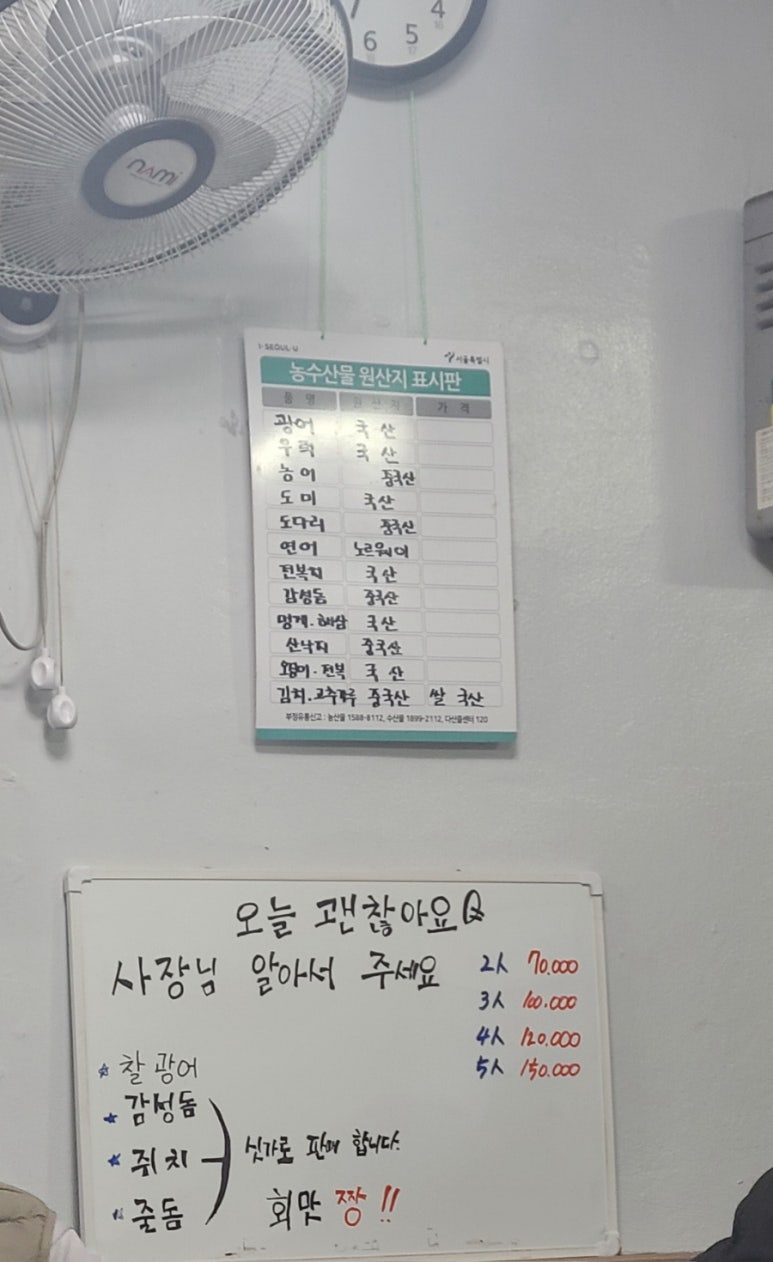 4
5
6
17
18
nami
I·SEOUL·U
서울특별시
농수산물 원산지 표시판
품 명 원 산 지 가 격
광어 국 산
우럭 국 산
농어 중국산
도미 국산
도다리 중국산
연어 노르웨이
전복치 국 산
감성돔 중국산
멍게.해삼 국 산
산낙지 중국산
오징어.전복 국 산
김치.고추가루 중국산 쌀 국산
부정유통신고 : 농산물 1588-8112, 수산물 1899-2112, 다산콜센터 120
오늘 괜찮아요
사장님 알아서 주세요
2人 70.000
3人 100.000
4人 120.000
5人 150.000
★ 찰 광어
★ 감성돔
★ 쥐치
★ 줄돔
싯가로 판매 합니다.
회맛 짱!!